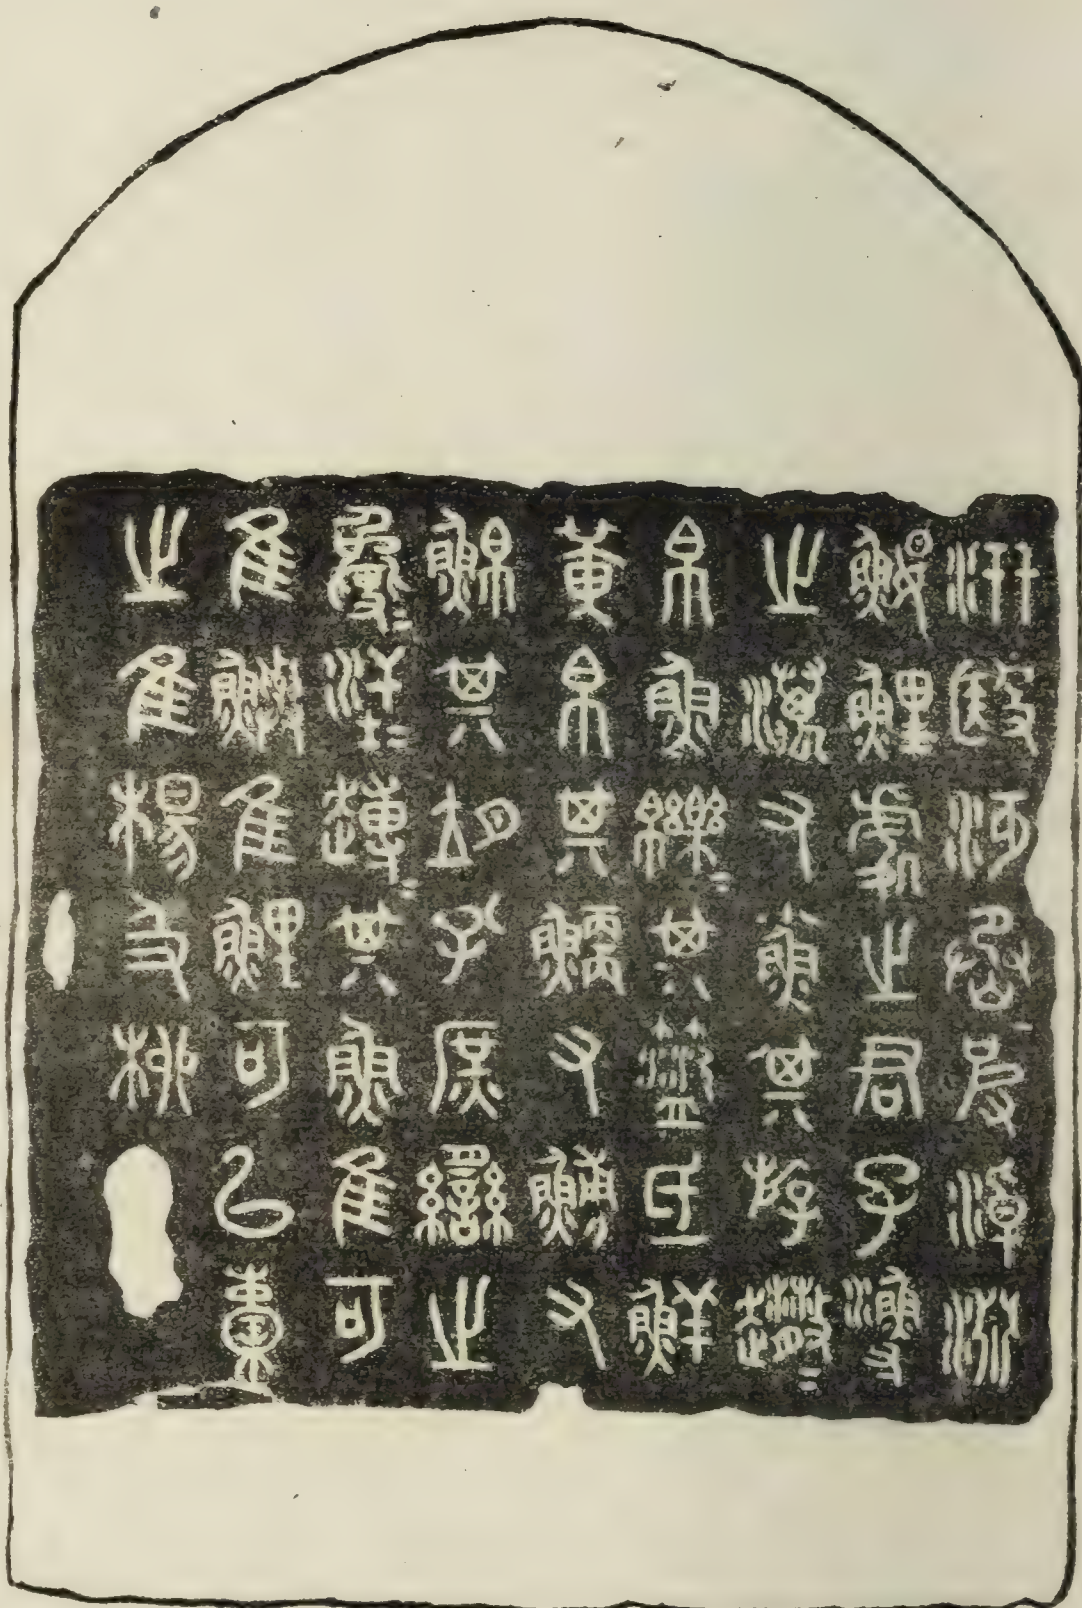 汧殹沔丞皮淖淵
鰋鯉處之君子漁
之澫又小魚其斿趣=
帛魚皪=其盜氐鮮
黃帛其鯾又鰟又
鮊其孔庶臠之
汗=其魚隹可
隹鱮隹鯉可以橐
之隹楊及柳